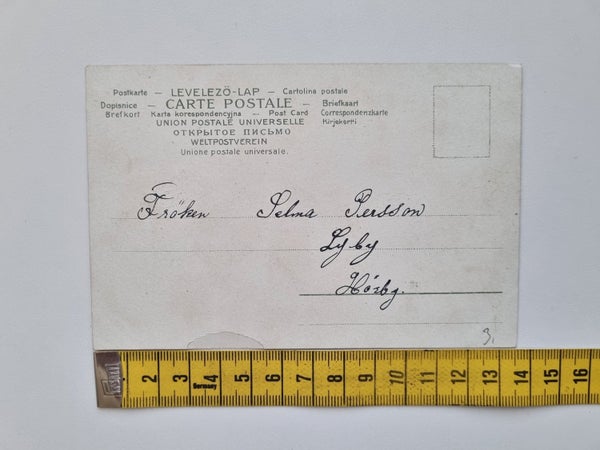 Postkarte – LEVELEZŐ-LAP – Cartolina postale
Dopisnice – CARTE POSTALE – Briefkaart
Brefkort Karta korespondencyjna – Post Card Correspondenzkarte
UNION POSTALE UNIVERSELLE Kirjekorri
ОТКРЫТОЕ ПИСЬМО
WELTPOSTVEREIN
Unione postale universale.
Fröken Selma Persson
Lyby
Hörby.
3.
2 3 4 5 6 7 8 9 10 11 12 13 14 15 16
Germany